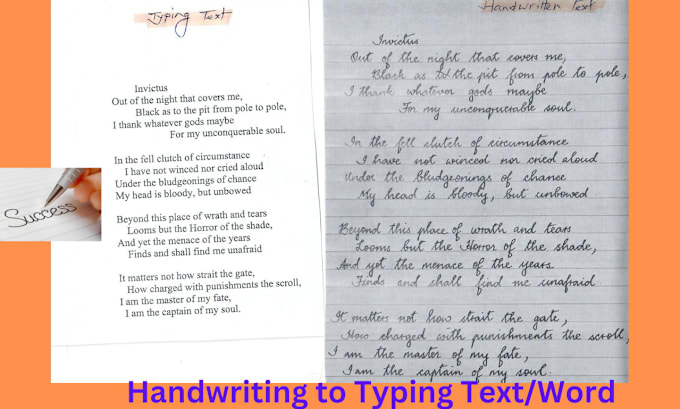 Typing Text
Invictus
Out of the night that covers me,
Black as to the pit from pole to pole,
I thank whatever gods maybe
For my unconquerable soul.
In the fell clutch of circumstance
I have not winced nor cried aloud
Under the bludgeonings of chance
My head is bloody, but unbowed
Beyond this place of wrath and tears
Looms but the Horror of the shade,
And yet the menace of the years
Finds and shall find me unafraid
It matters not how strait the gate,
How charged with punishments the scroll,
I am the master of my fate,
I am the captain of my soul.
Success
Handwritten Text
Invictus
Out of the night that covers me,
Black as to the pit from pole to pole,
I thank whatever gods maybe
For my unconquerable soul.
In the fell clutch of circumstance
I have not winced nor cried aloud
Under the bludgeonings of chance
My head is bloody, but unbowed
Beyond this place of wrath and tears
Looms but the Horror of the shade,
And yet the menace of the years
Finds and shall find me unafraid
It matters not how strait the gate,
How charged with punishments the scroll,
I am the master of my fate,
I am the captain of my soul.
Handwriting to Typing Text/Word